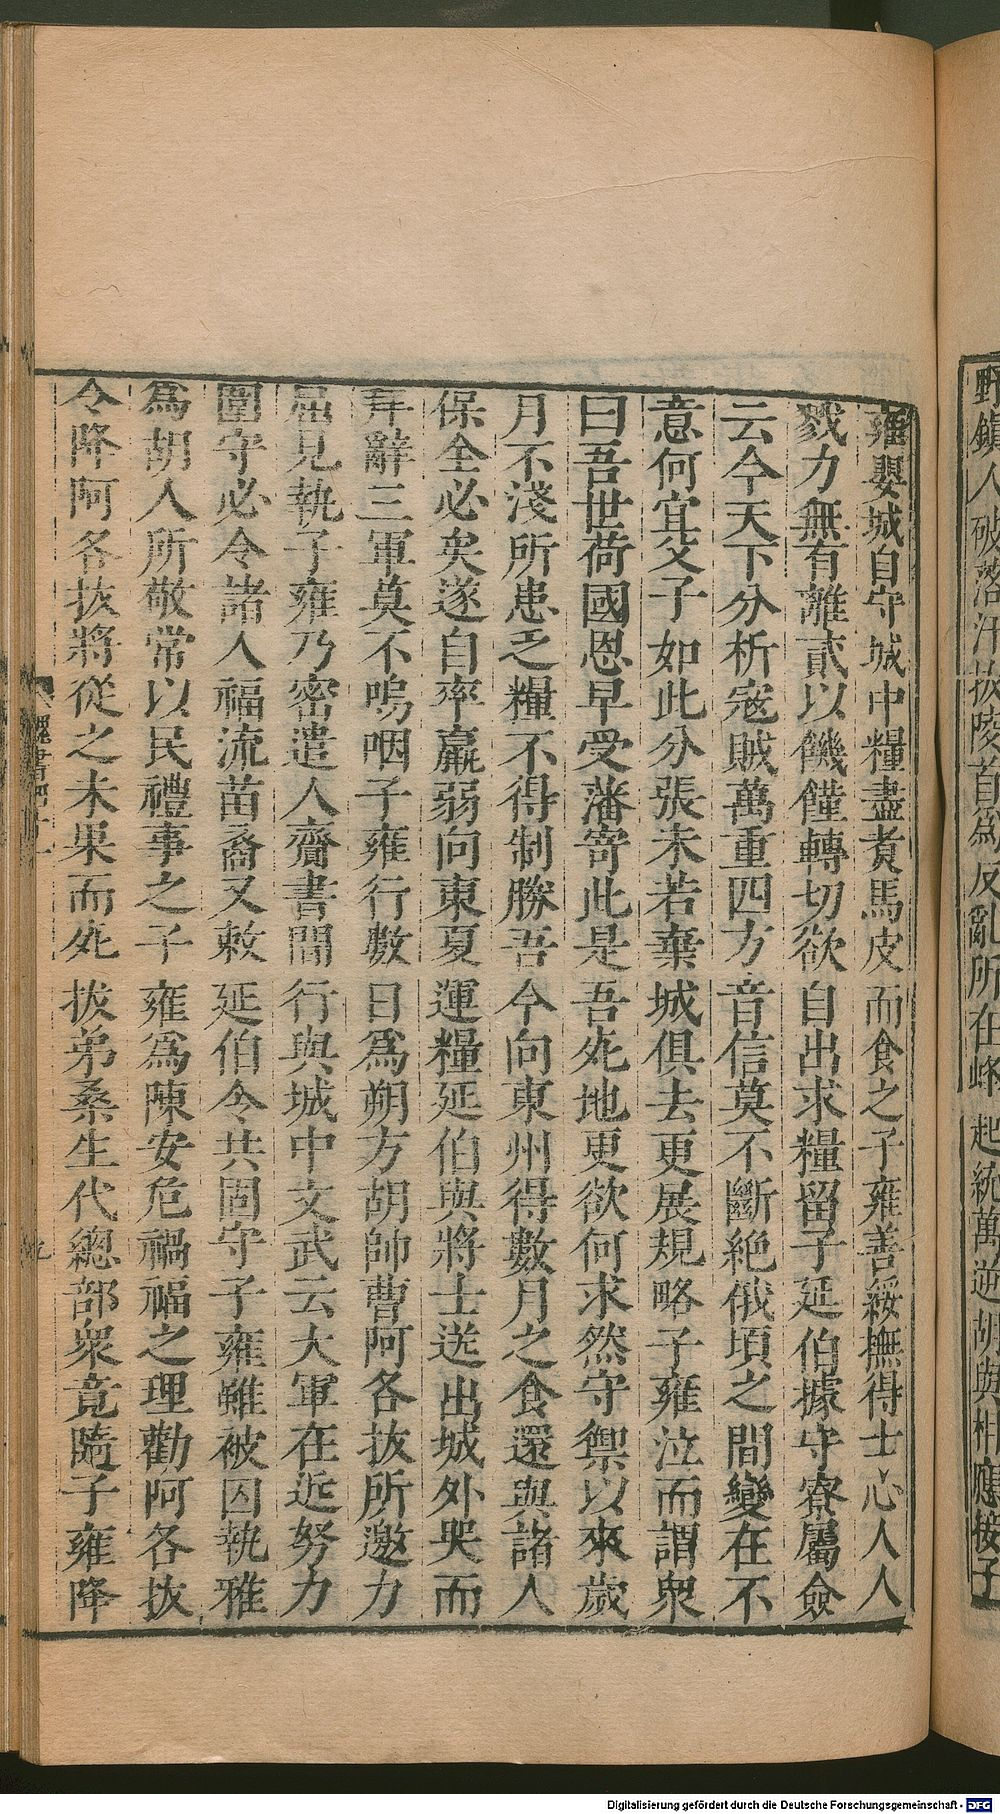 野鎮人破落汗拔陵首為反亂所在蜂起統萬逆胡與相應接子
雍嬰城自守城中糧盡煑馬皮而食之子雍善綏撫得士心人人
戮力無有離貳以饑饉轉切欲自出求糧留子延伯據守寮屬僉
云今天下分析寇賊萬重四方音信莫不斷絕俄頃之間變在不
意何宜父子如此分張未若棄城俱去更展規略子雍泣而謂衆
曰吾世荷國恩早受藩寄此是吾死地更欲何求然守禦以來歲
月不淺所患乏糧不得制勝吾今向東州得數月之食還與諸人
保全必矣遂自率羸弱向東夏運糧延伯與將士送出城外哭而
拜辭三軍莫不嗚咽子雍行數日為朔方胡帥曹阿各拔所邀力
屈見執子雍乃密遣人齎書間行與城中文武云大軍在近努力
圍守必令諸人福流苗裔又敕延伯令共固守子雍雖被囚執雅
為胡人所敬常以民禮事之子雍為陳安危禍福之理勸阿各拔
令降阿各拔將從之未果而死拔弟桑生代總部衆竟隨子雍降
魏書四十一
九
Digitalisierung gefördert durch die Deutsche Forschungsgemeinschaft - DFG